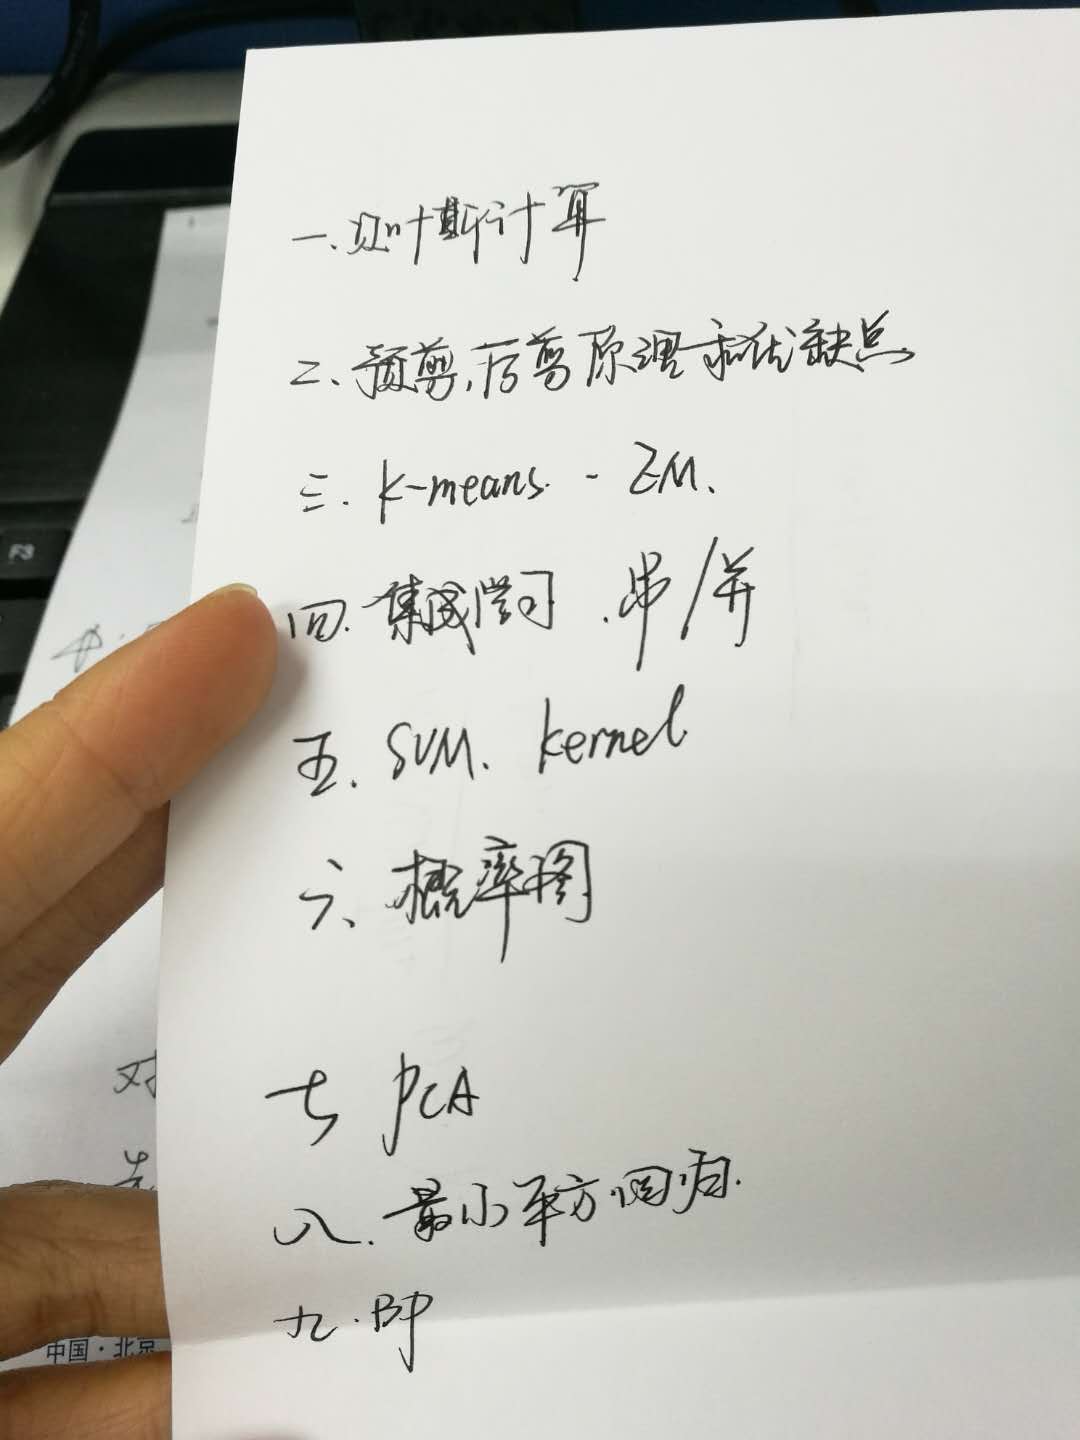 一.贝叶斯计算
二、预剪,后剪原理和优缺点
三. k-means. - EM.
四.集成学习.串/并
五. SVM. kernel
六、概率图
七 PCA
八.最小平方回归.
九.BP
F3
对
中国·北京